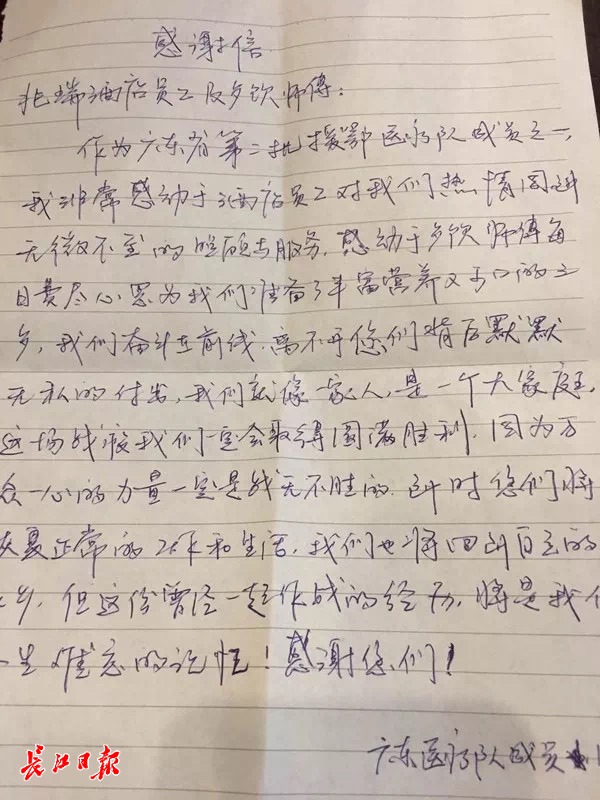 感谢信
兆瑞酒店员工及餐饮师傅：
作为广东省第二批援鄂医疗队成员之一，
我非常感动于酒店员工对我们热情周到
无微不至的照顾与服务，感动于餐饮师傅每
日费尽心思为我们准备了丰富营养又可口的三
餐，我们奋斗在前线，离不开您们背后默默
无私的付出，我们就像一家人，是一个大家庭，
这场战疫我们一定会取得圆满胜利，因为万
众一心的力量一定是战无不胜的，到时您们将
恢复正常的工作和生活，我们也将回到自己的
家乡，但这份曾经一起作战的经历，将是我们
一生难忘的记忆！感谢您们！
广东医疗队成员
长江日报